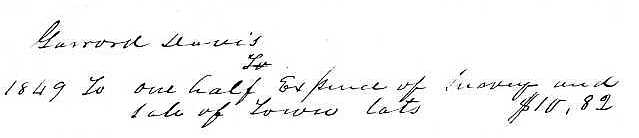 Garrord Davis
To
1849 To one half Expence of Survey and
Sale of Town lots $10,82